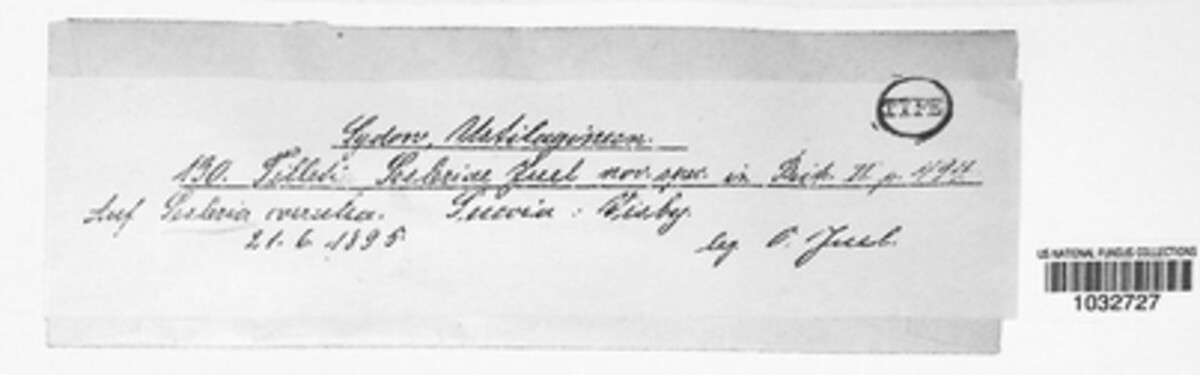 TYPE
Sydow, Ustilagineen.
130. Tilletia Sesleriae Juel nov. spec. in Krieb. II p. 494.
Auf Sesleria coerulea. Suecia: Visby.
21. 6. 1895. leg. O. Juel.
US NATIONAL FUNGUS COLLECTIONS
1032727